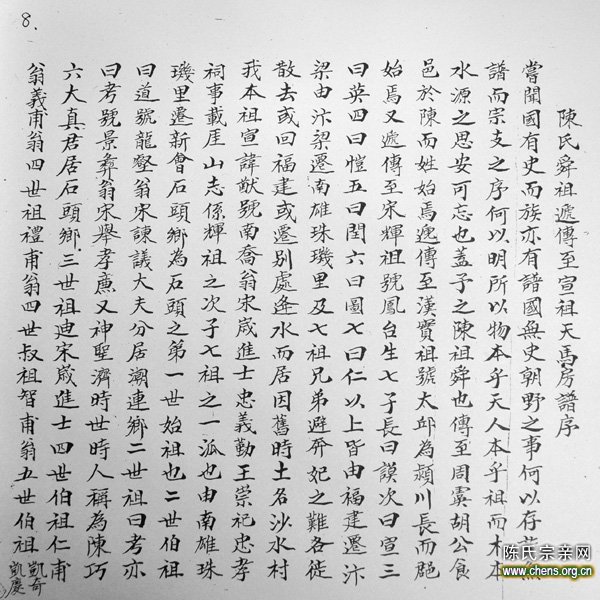 8.
陳氏舜祖遞傳至宣祖天馬房譜序
嘗聞國有史而族亦有譜國無史朝野之事何以存族無
譜而宗支之序何以明所以物本乎天人本乎祖而木本
水源之思安可忘也蓋子之陳祖舜也傳至周虞胡公食
邑於陳而姓始焉逸傳至漢實祖號太邱為潁川長而郡
始焉又遞傳至宋輝祖號鳳台生七子長曰謨次曰宣三
曰英四曰愷五曰閏六曰圖七曰仁以上皆由福建遷汴
梁由汴梁遷南雄珠璣里及七祖兄弟避奔妃之難各徙
散去或回福建或遷別處逢水而居因舊時土名沙水村
我本祖宣諱猷號南喬翁宋歲進士忠義勤王崇祀忠孝
祠事載厓山志係輝祖之次子七祖之一派也由南雄珠
璣里遷新會石頭鄉為石頭之第一世始祖也二世伯祖
曰道號龍壑翁宋諫議大夫分居潮連鄉二世祖曰考亦
曰考號景彝翁宋舉孝廉又神聖濟時世時人稱為陳巧
六大真君居石頭鄉三世祖迪宋歲進士四世伯祖仁甫
翁義甫翁四世祖禮甫翁四世叔祖智甫翁五世伯祖凱奇凱慶
陈氏宗亲网
www.chens.org.cn